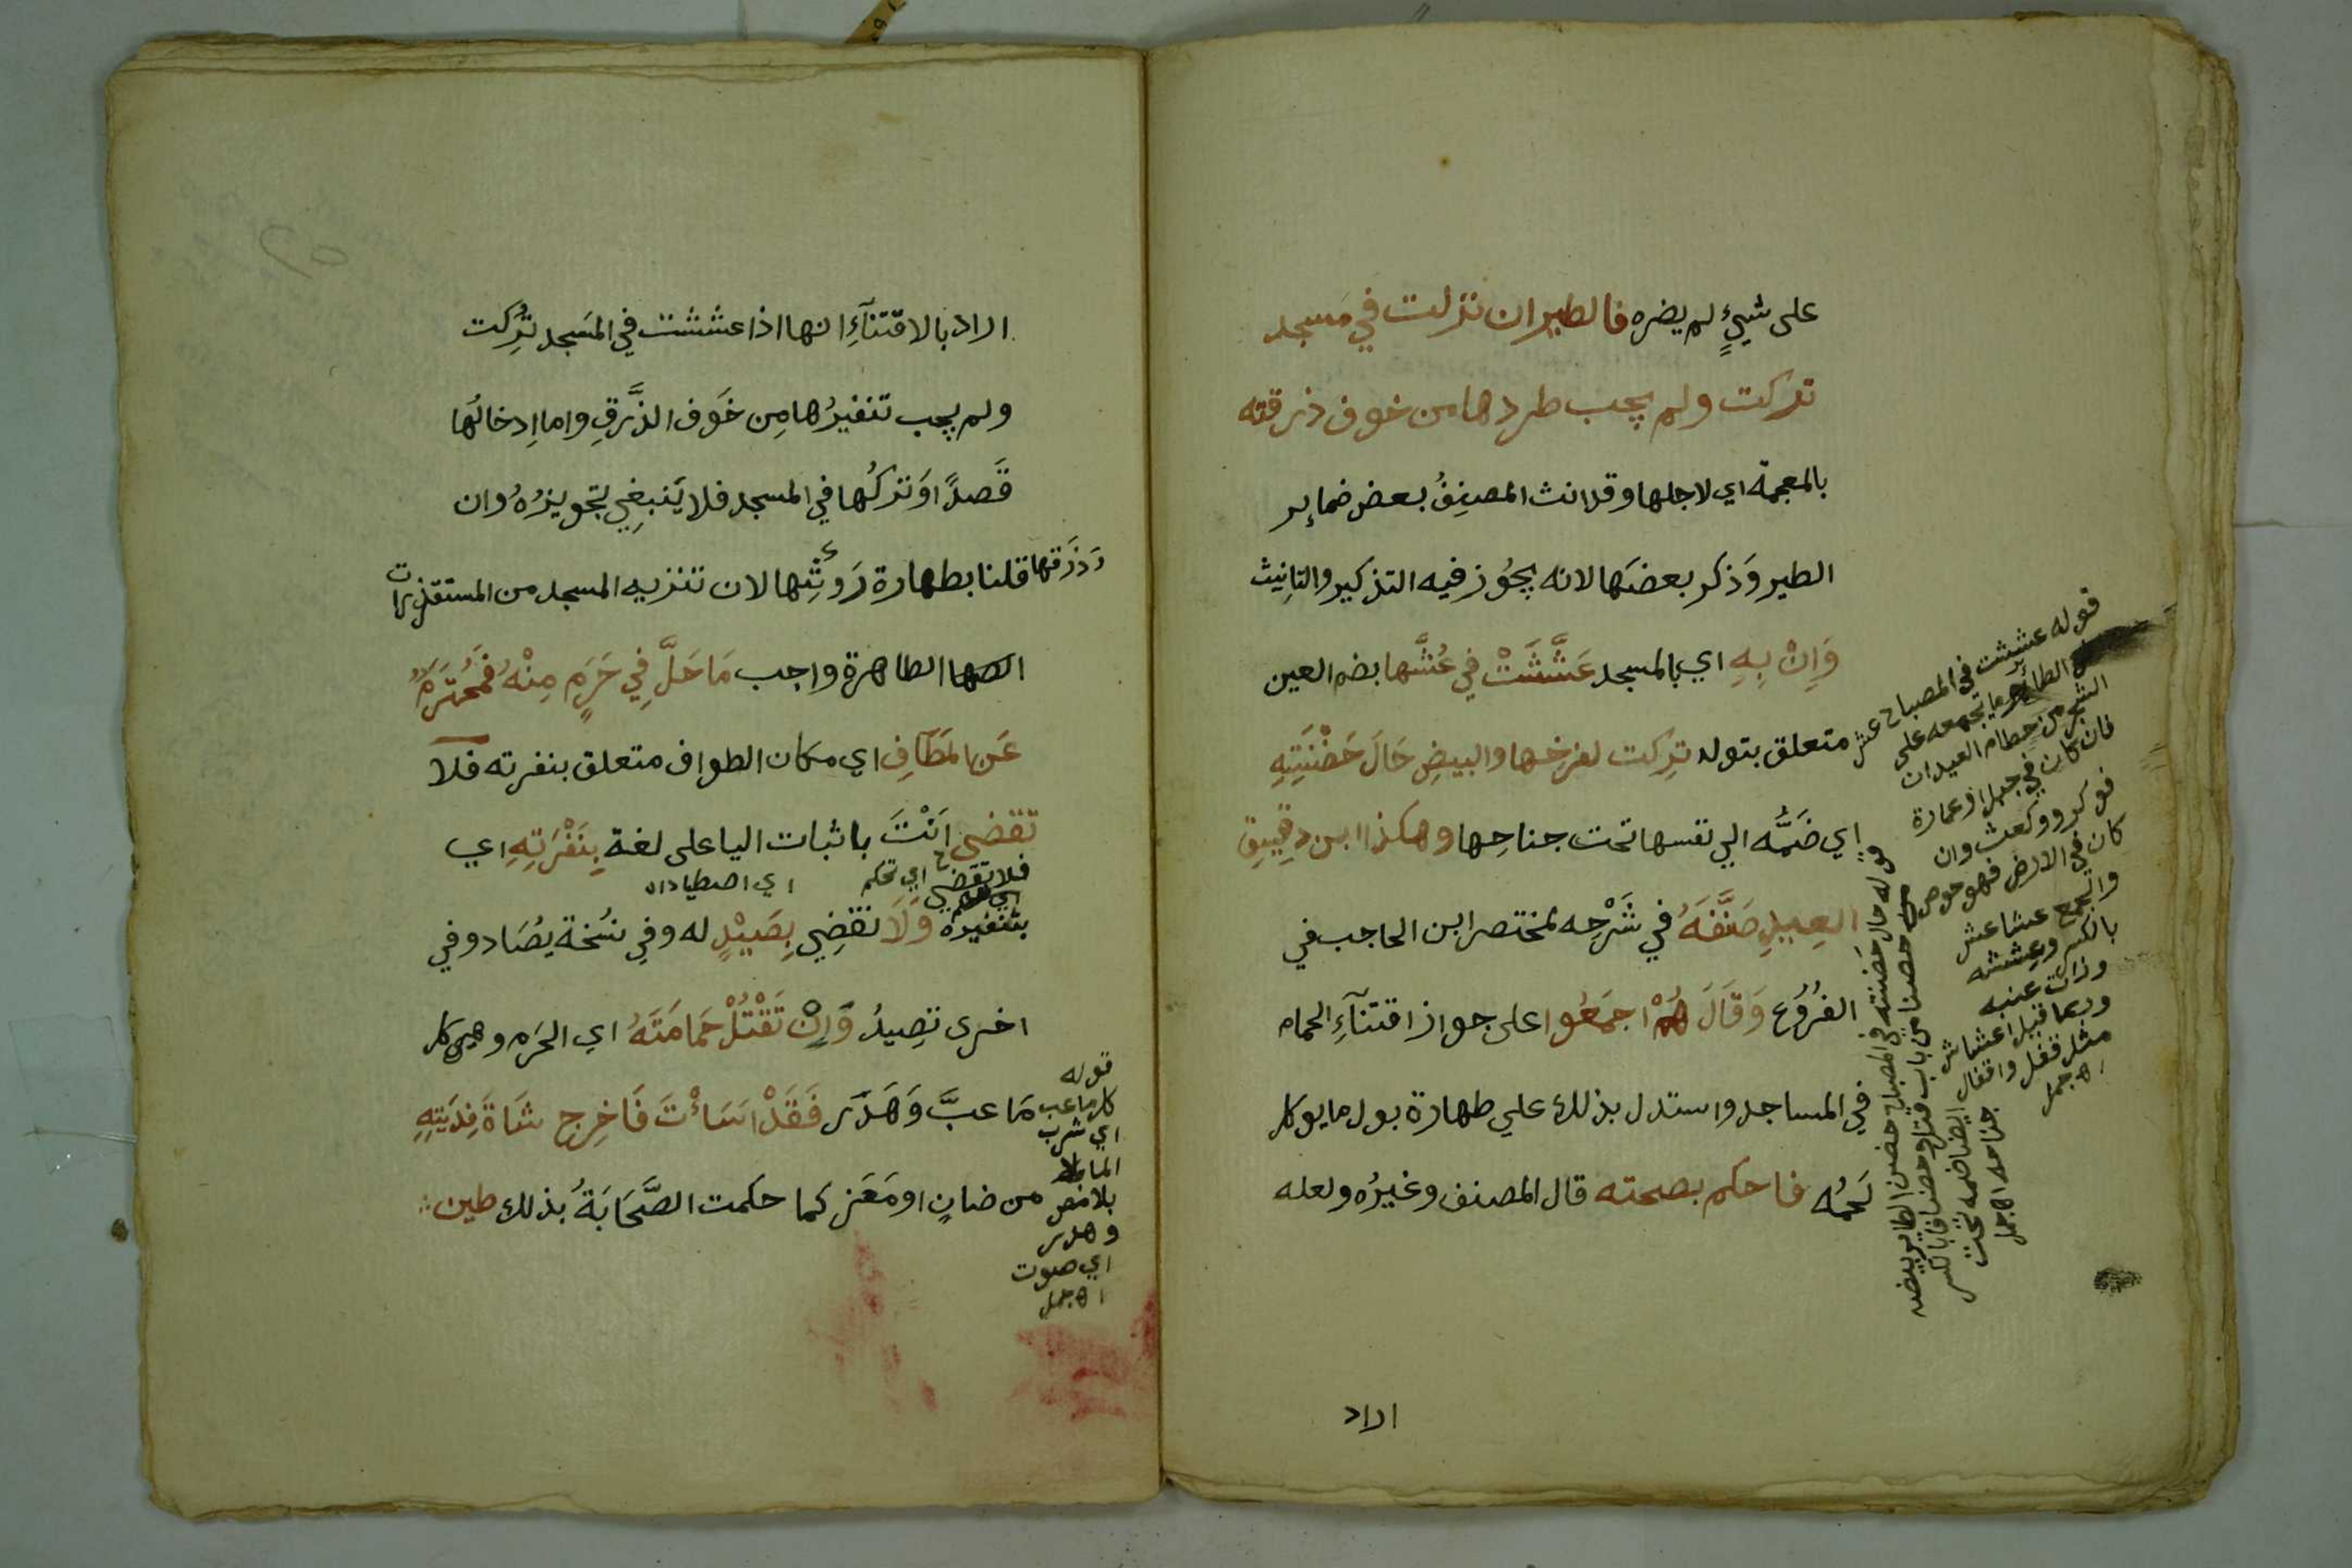 على شيءٍ لم يضره فالطير ان نزلت في مسجد
تركت ولم يجب طردها من خوف ذرقته
بالمعجمة اي لاجلها وقد انث المصنِفُ بعض ضماير
الطير وَذكر بعضَها لانه يجُوز فيه التذكير والتانيث
وَاِنْ بِهِ اي بالمسجد عَشَّشَتْ فِي عُشَّها بضم العين
متعلق بقوله تركت لفرخها والبيضِ حَالَ حَضْنَتِهِ
اي ضَمُّه الي نفسها تحت جناحِها وهكذا ابن دقيقِ
العِيدِ صَنَّفَهُ في شَرْحِه لمختصر ابن الحاجب في
الفُرُوع وَقَالَ هُمْ اجمَعُوا على جواز اقتنآءِ الحمام
في المساجد واستدل بذلك علي طهارة بول ما يوكل
لَحمُه فاحكم بصحته قال المصنف وغيرُه ولعله
اراد
قوله عششت في المصباح عش
الطائر ما يجمعه على
الشجر من حطام العيدان
فان كان في جبل او عمارة
فهو كر ووكعث وان
كان في الارض فهو حوص
والجمع عشا عش
بالكسر وعششه
وزان عنبه
وربما قيل اعشاش
مثل قفل واقفال
اه جمل
قوله حال حضنته في المصباح حضن الطاير بيضه
حضنا من باب قتل وحضانا بالكسر
ايضا ضمه تحت
جناحه اه جمل
اراد بالاقتنآءِ انها اذا عششت في المسَجد تُرِكت
ولم يجب تنفيرُها مِن خَوف الذَّرقِ واما اِدخالُها
قَصدًا اوَ تركُها في المسجد فلا يَنبغِي تجويزُهُ وان
قلنا بطهارة رَوثِها لان تنزيه المسجد من المستقذرات
وَذَرَقها
الطاهرة واجب مَا حَلَّ فِي حَرَمٍ مِنْهُ فمُحْتَرَمٌ
عَن المَطَافِ اي مكان الطواف متعلق بنفرته فلا
تقضي اَنْتَ باثبات اليا على لغة بِنَفْرَتِهِ اي
فلا تقضي اي تحكم
اي اصطياداه
بتنفيره وَلَا نقضِي بِصَيْدٍ له وفي نسُخة يصُاد وفي
اخرى تصِيدُ وَاِنْ تَقْتُلْ حَمَامَتَهُ اي الحَرَم وهي كل
مَا عبَّ وَهَدَر فَقَدْ اسَاْتَ فَاخرِج شَاةَ فِديَتِهِ
من ضانٍ او مَعَز كما حكمت الصَّحَابَةُ بذلك طين
قوله
كل ما عب
اي شرب
الما
بلا مص
وهدر
اي صوت
اه جمل